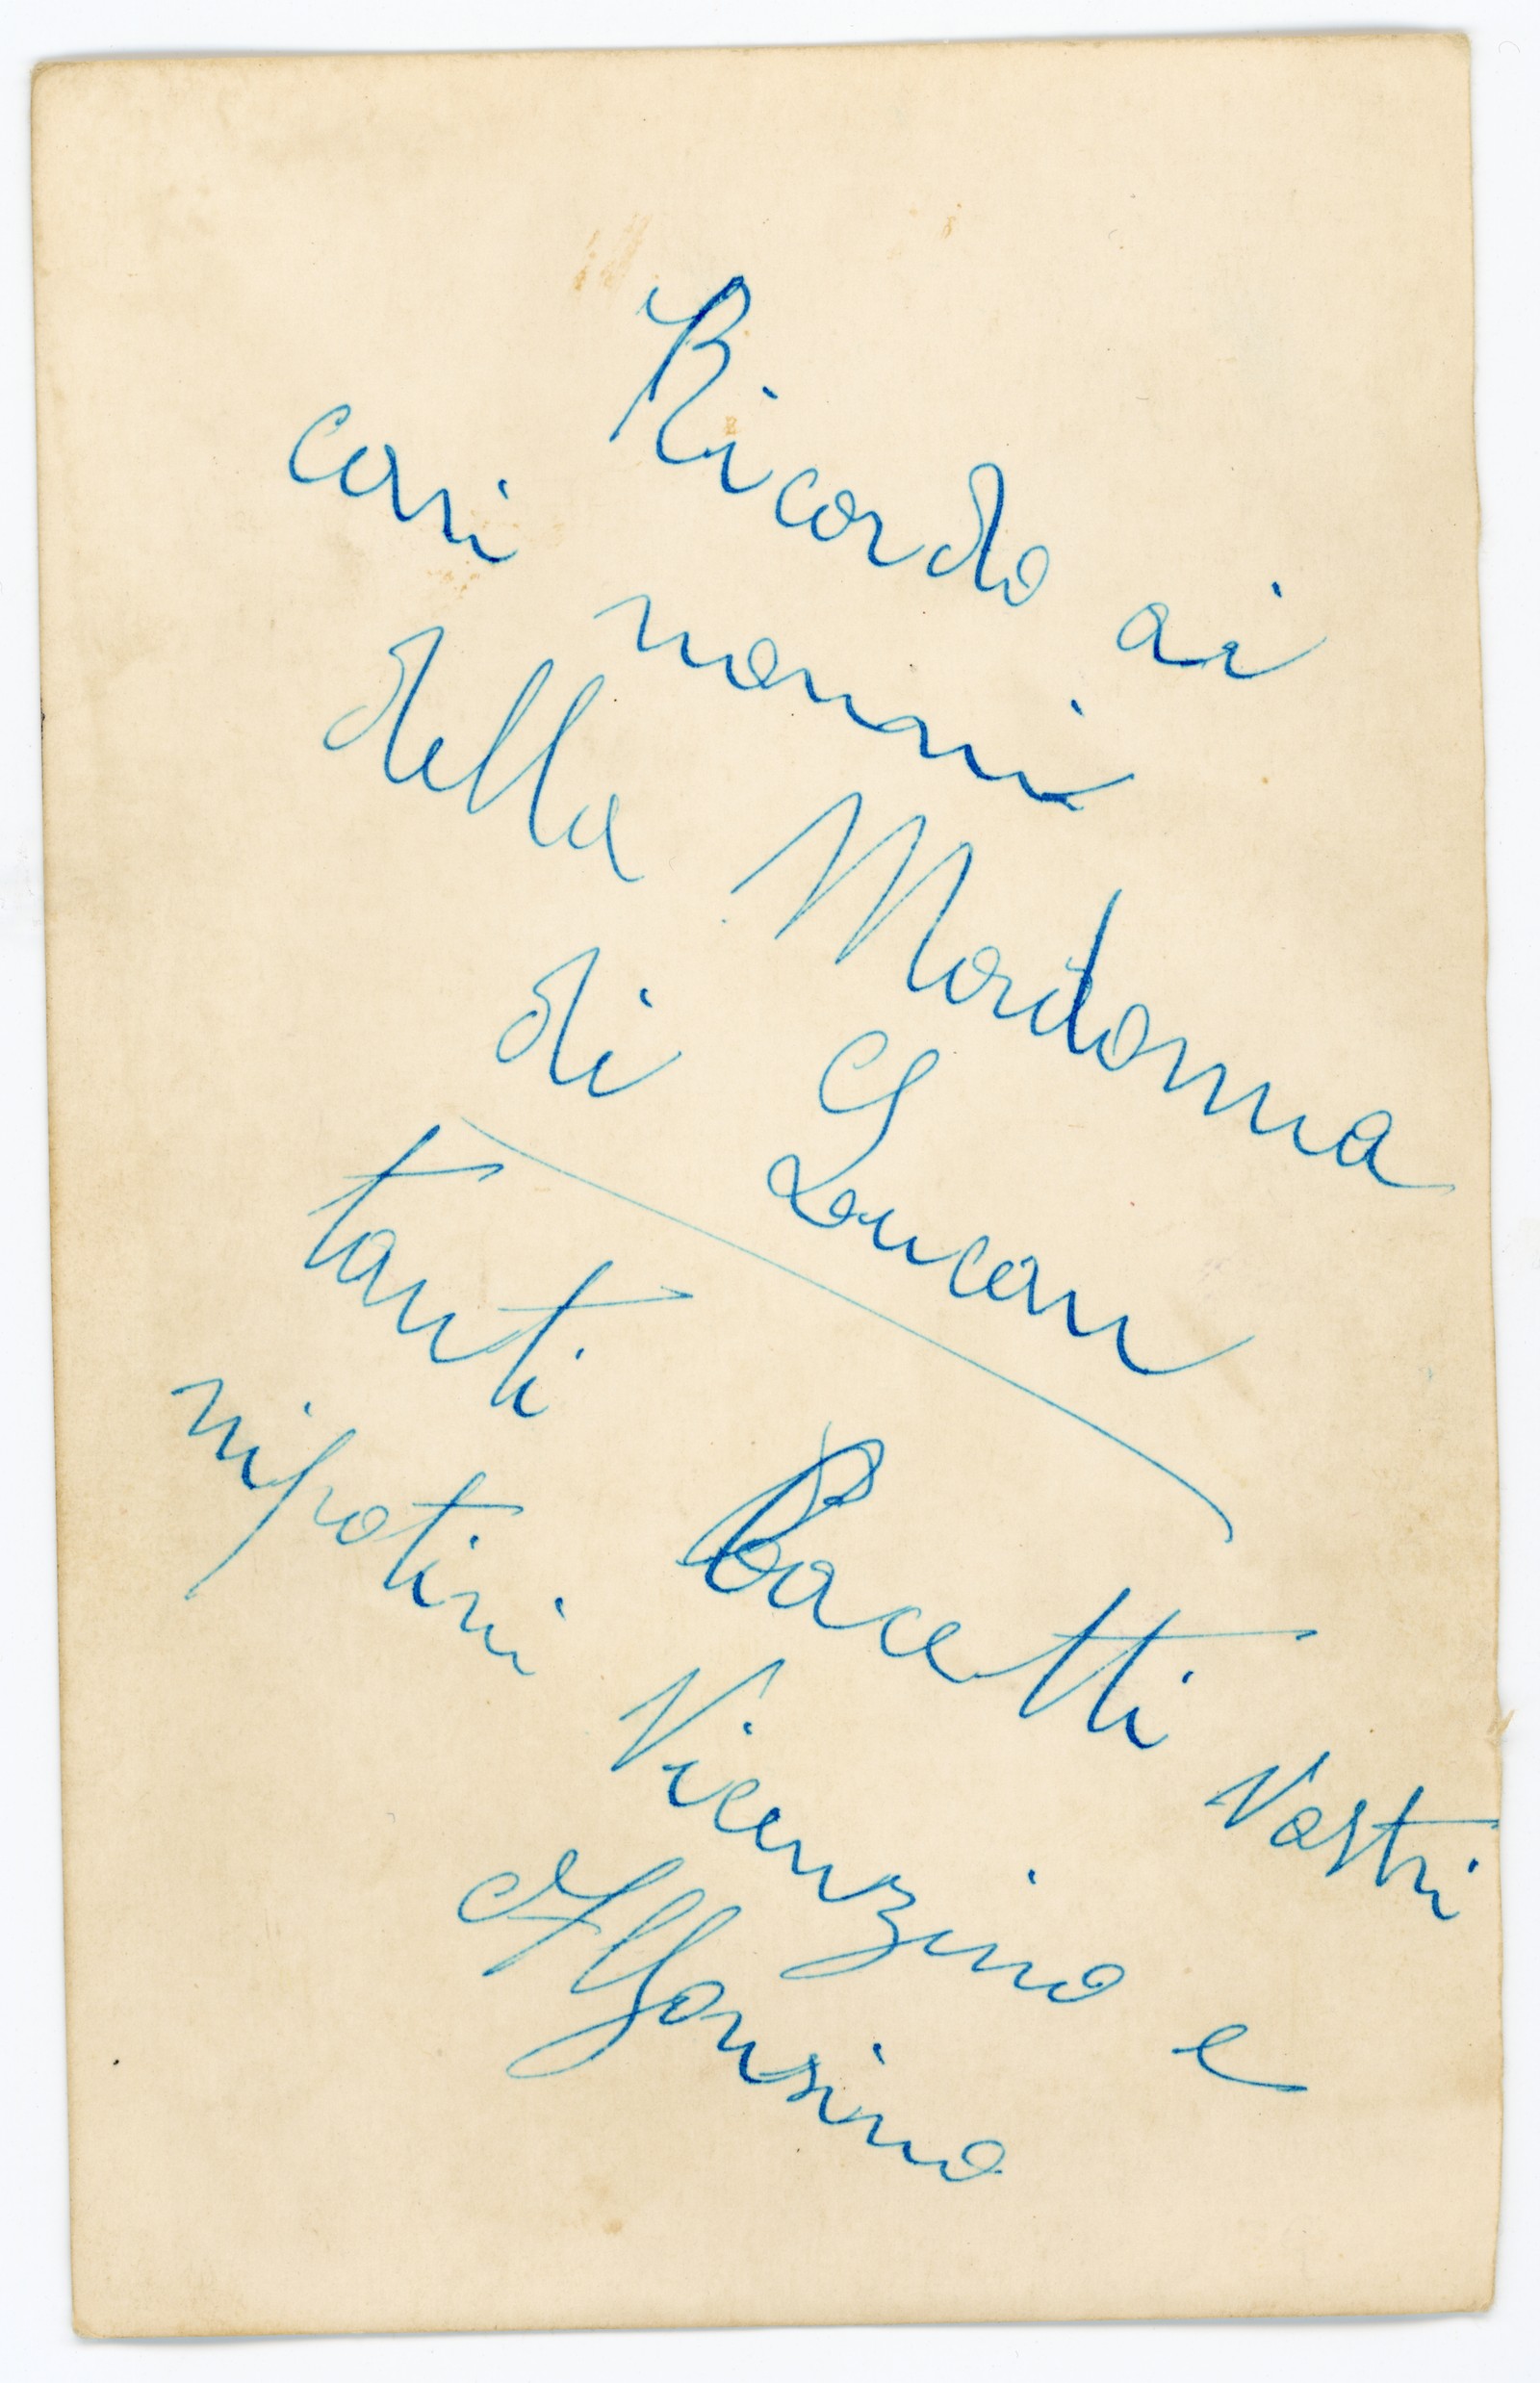 Ricordo ai
cari nonni
della Madonna
di S
tanti Bacetti Vostri
nipotini Vicenzino e
Alfonsino